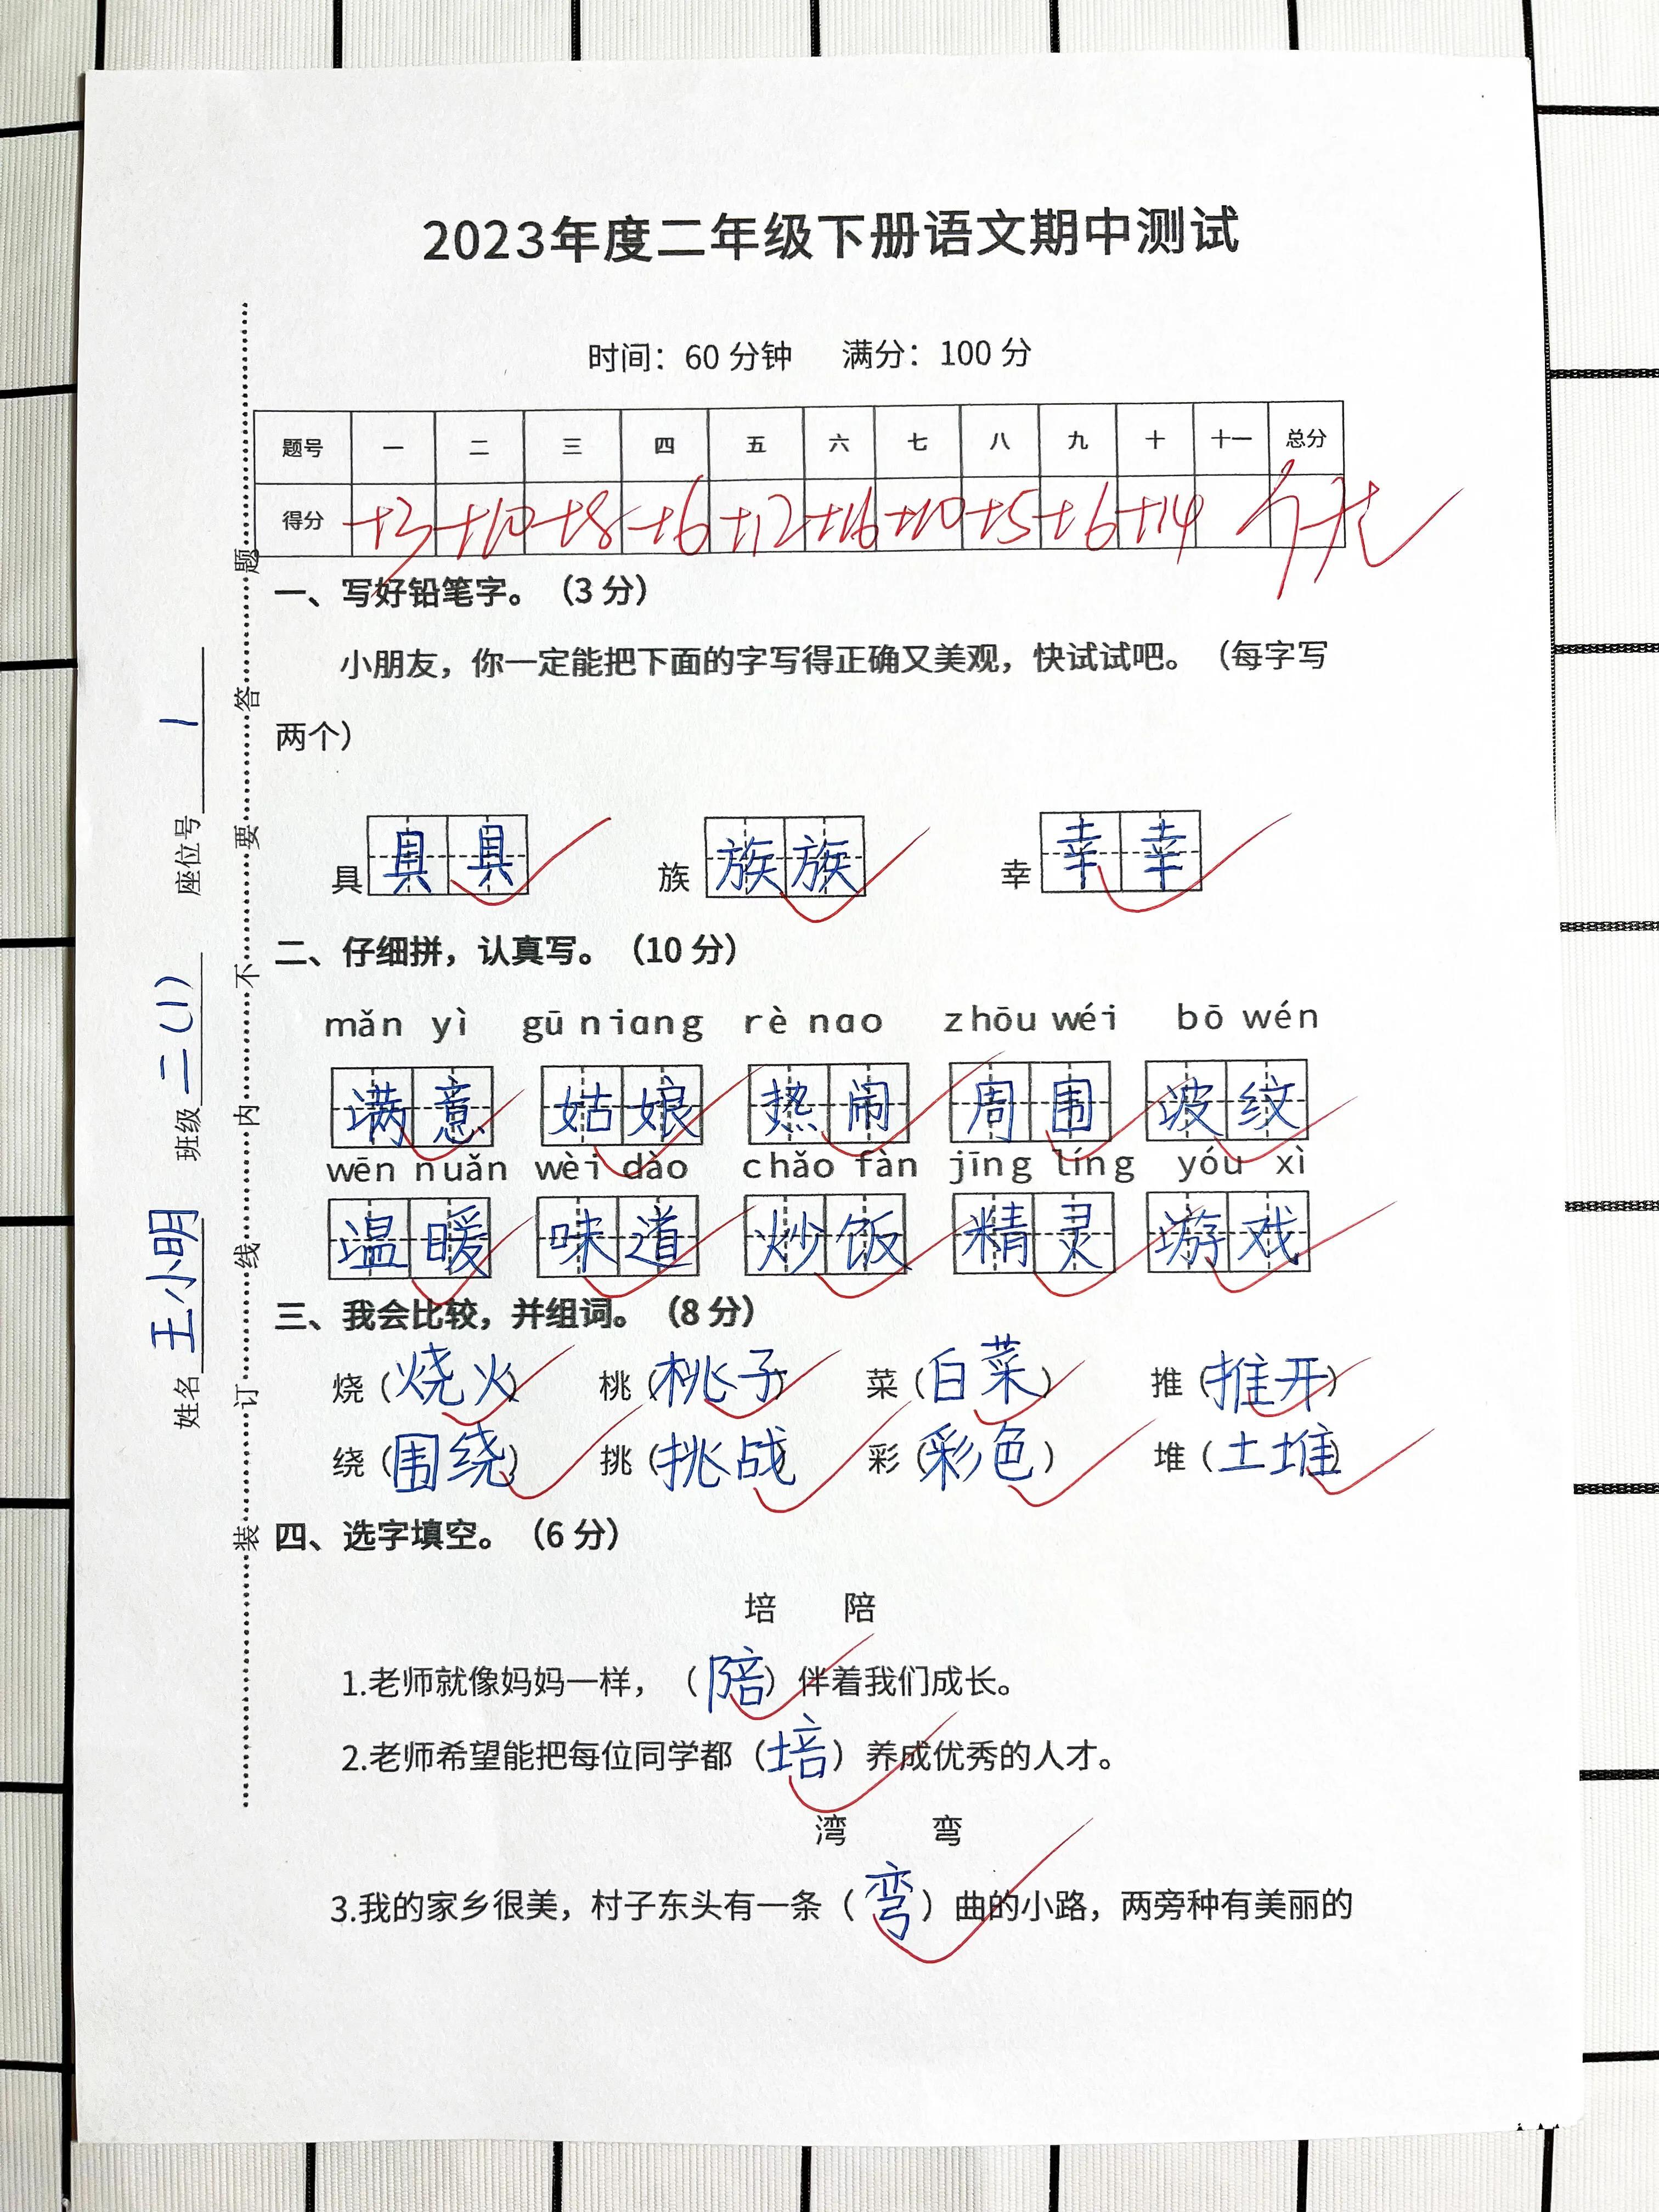 2023年度二年级下册语文期中测试
时间：60 分钟 满分：100 分
题号 一 二 三 四 五 六 七 八 九 十 十一 总分
得分 +3 +10 +8 +6 +12 +16 +10 +5 +6 +14
一、写好铅笔字。（3 分）
小朋友，你一定能把下面的字写得正确又美观，快试试吧。（每字写
两个）
具 具 具 族 族 族 幸 幸 幸
二、仔细拼，认真写。（10 分）
mǎn yì gū niang rè nao zhōu wéi bō wén
满意 姑娘 热闹 周围 波纹
wēn nuǎn wèi dào chǎo fàn jīng líng yóu xì
温暖 味道 炒饭 精灵 游戏
三、我会比较，并组词。（8 分）
烧（烧火） 桃（桃子） 菜（白菜） 推（推开）
绕（围绕） 挑（挑战） 彩（彩色） 堆（土堆）
四、选字填空。（6 分）
培 陪
1.老师就像妈妈一样，（陪）伴着我们成长。
2.老师希望能把每位同学都（培）养成优秀的人才。
湾 弯
3.我的家乡很美，村子东头有一条（弯）曲的小路，两旁种有美丽的
姓名 王小明 班级 二(1) 座位号 1
装 订 线 内 不 要 答 题